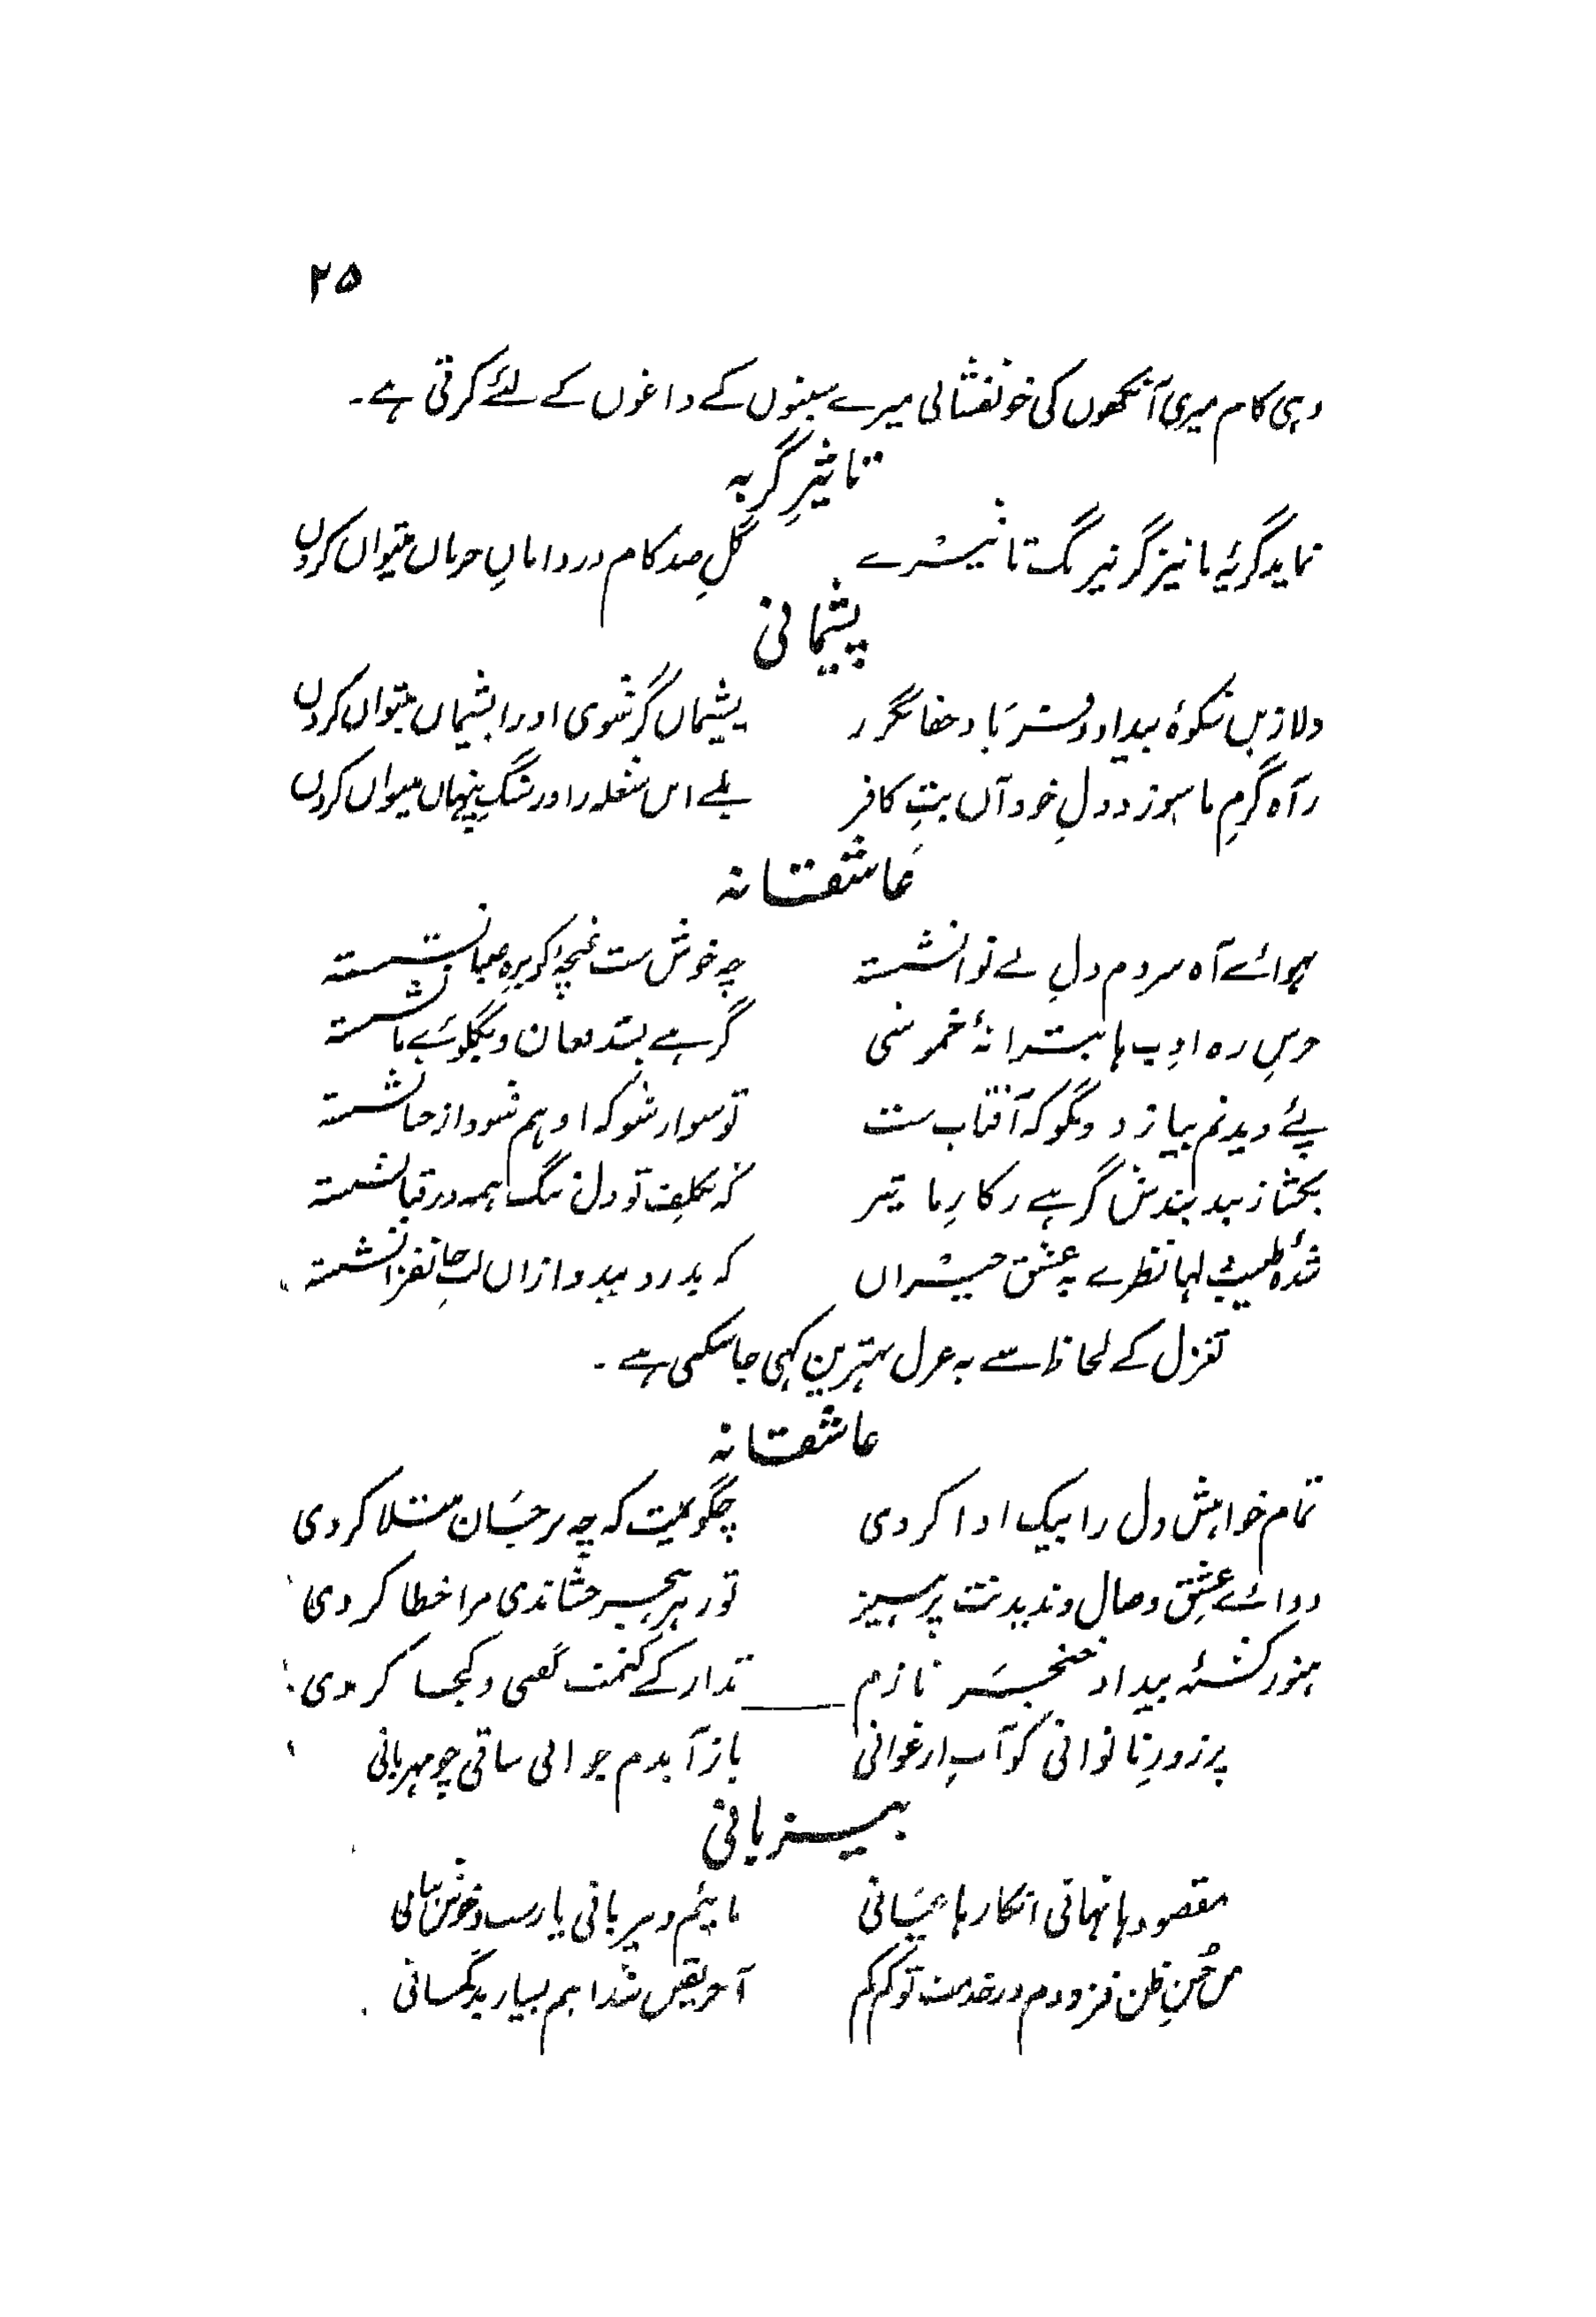 ۲۵
وہی کام میری آنکھوں کی خونفشانی میرے سینوں کے داغوں کے لئے کرتی ہے۔
تاثیرِ گریہ
نماید گریۂ ما نیز گر نیرنگ تاثیرے گلِ صد کام در دامانِ حرماں میتواں کردن
پشیمانی
دلا زیں شکوۂ بیداد و فریاد جفا بگذر پشیماں گر شوی او را پشیماں میتواں کردن
ز آہ گرمِ ما سوزد دلِ خود آں بتِ کافر بلے ایں شعلہ را در سنگ پنہاں میتواں کردن
عاشقانہ
ہوائے آہ سردم دلِ بے نوا نشستہ چہ خوش ست غنچۂ کو برہِ صبا نشستہ
رہ ادب ہا خموشی گرہے و بگلوئے ما نشستہ
پئے دیدنم بیازد و بگو کہ آفتاب ست تو سوار شو کہ او ہم شود از جا نشستہ
گرہے ز کارِ ما نیز کہ تو دل ہمہ در قبا نشستہ
شدۂ طبیبِ نظرے بہ عشق حیراں کہ بدرد ازاں لبِ جانفزا نشستہ
تغزل کے لحاظ سے یہ غزل بہترین کہی جا سکتی ہے۔
عاشقانہ
تمام خواہش دل را بیک ادا کردی چگویمیت کہ چہ بر جسان مبتلا کردی
دوائے عشق وصال و ندیدنت پرہیز تو زہر ہجر چشاندی مرا خطا کردی
ہنوز کشتۂ بیداد خنجر نازم تدارکے کنمت گفتی و کجا کردی
پر زورِ ناتوانی کو آبِ ارغوانی باز آیدم جوانی ساقی چو مہربانی
بیزبانی
مقصود ہا نہانی انکار ہا عیانی مائیم و بیزبانی یارست و خوش بیانی
من حُسنِ ظن فزودم در خدمت تو کم کم آخر یقیں شد ہم بسیار بدگمانی